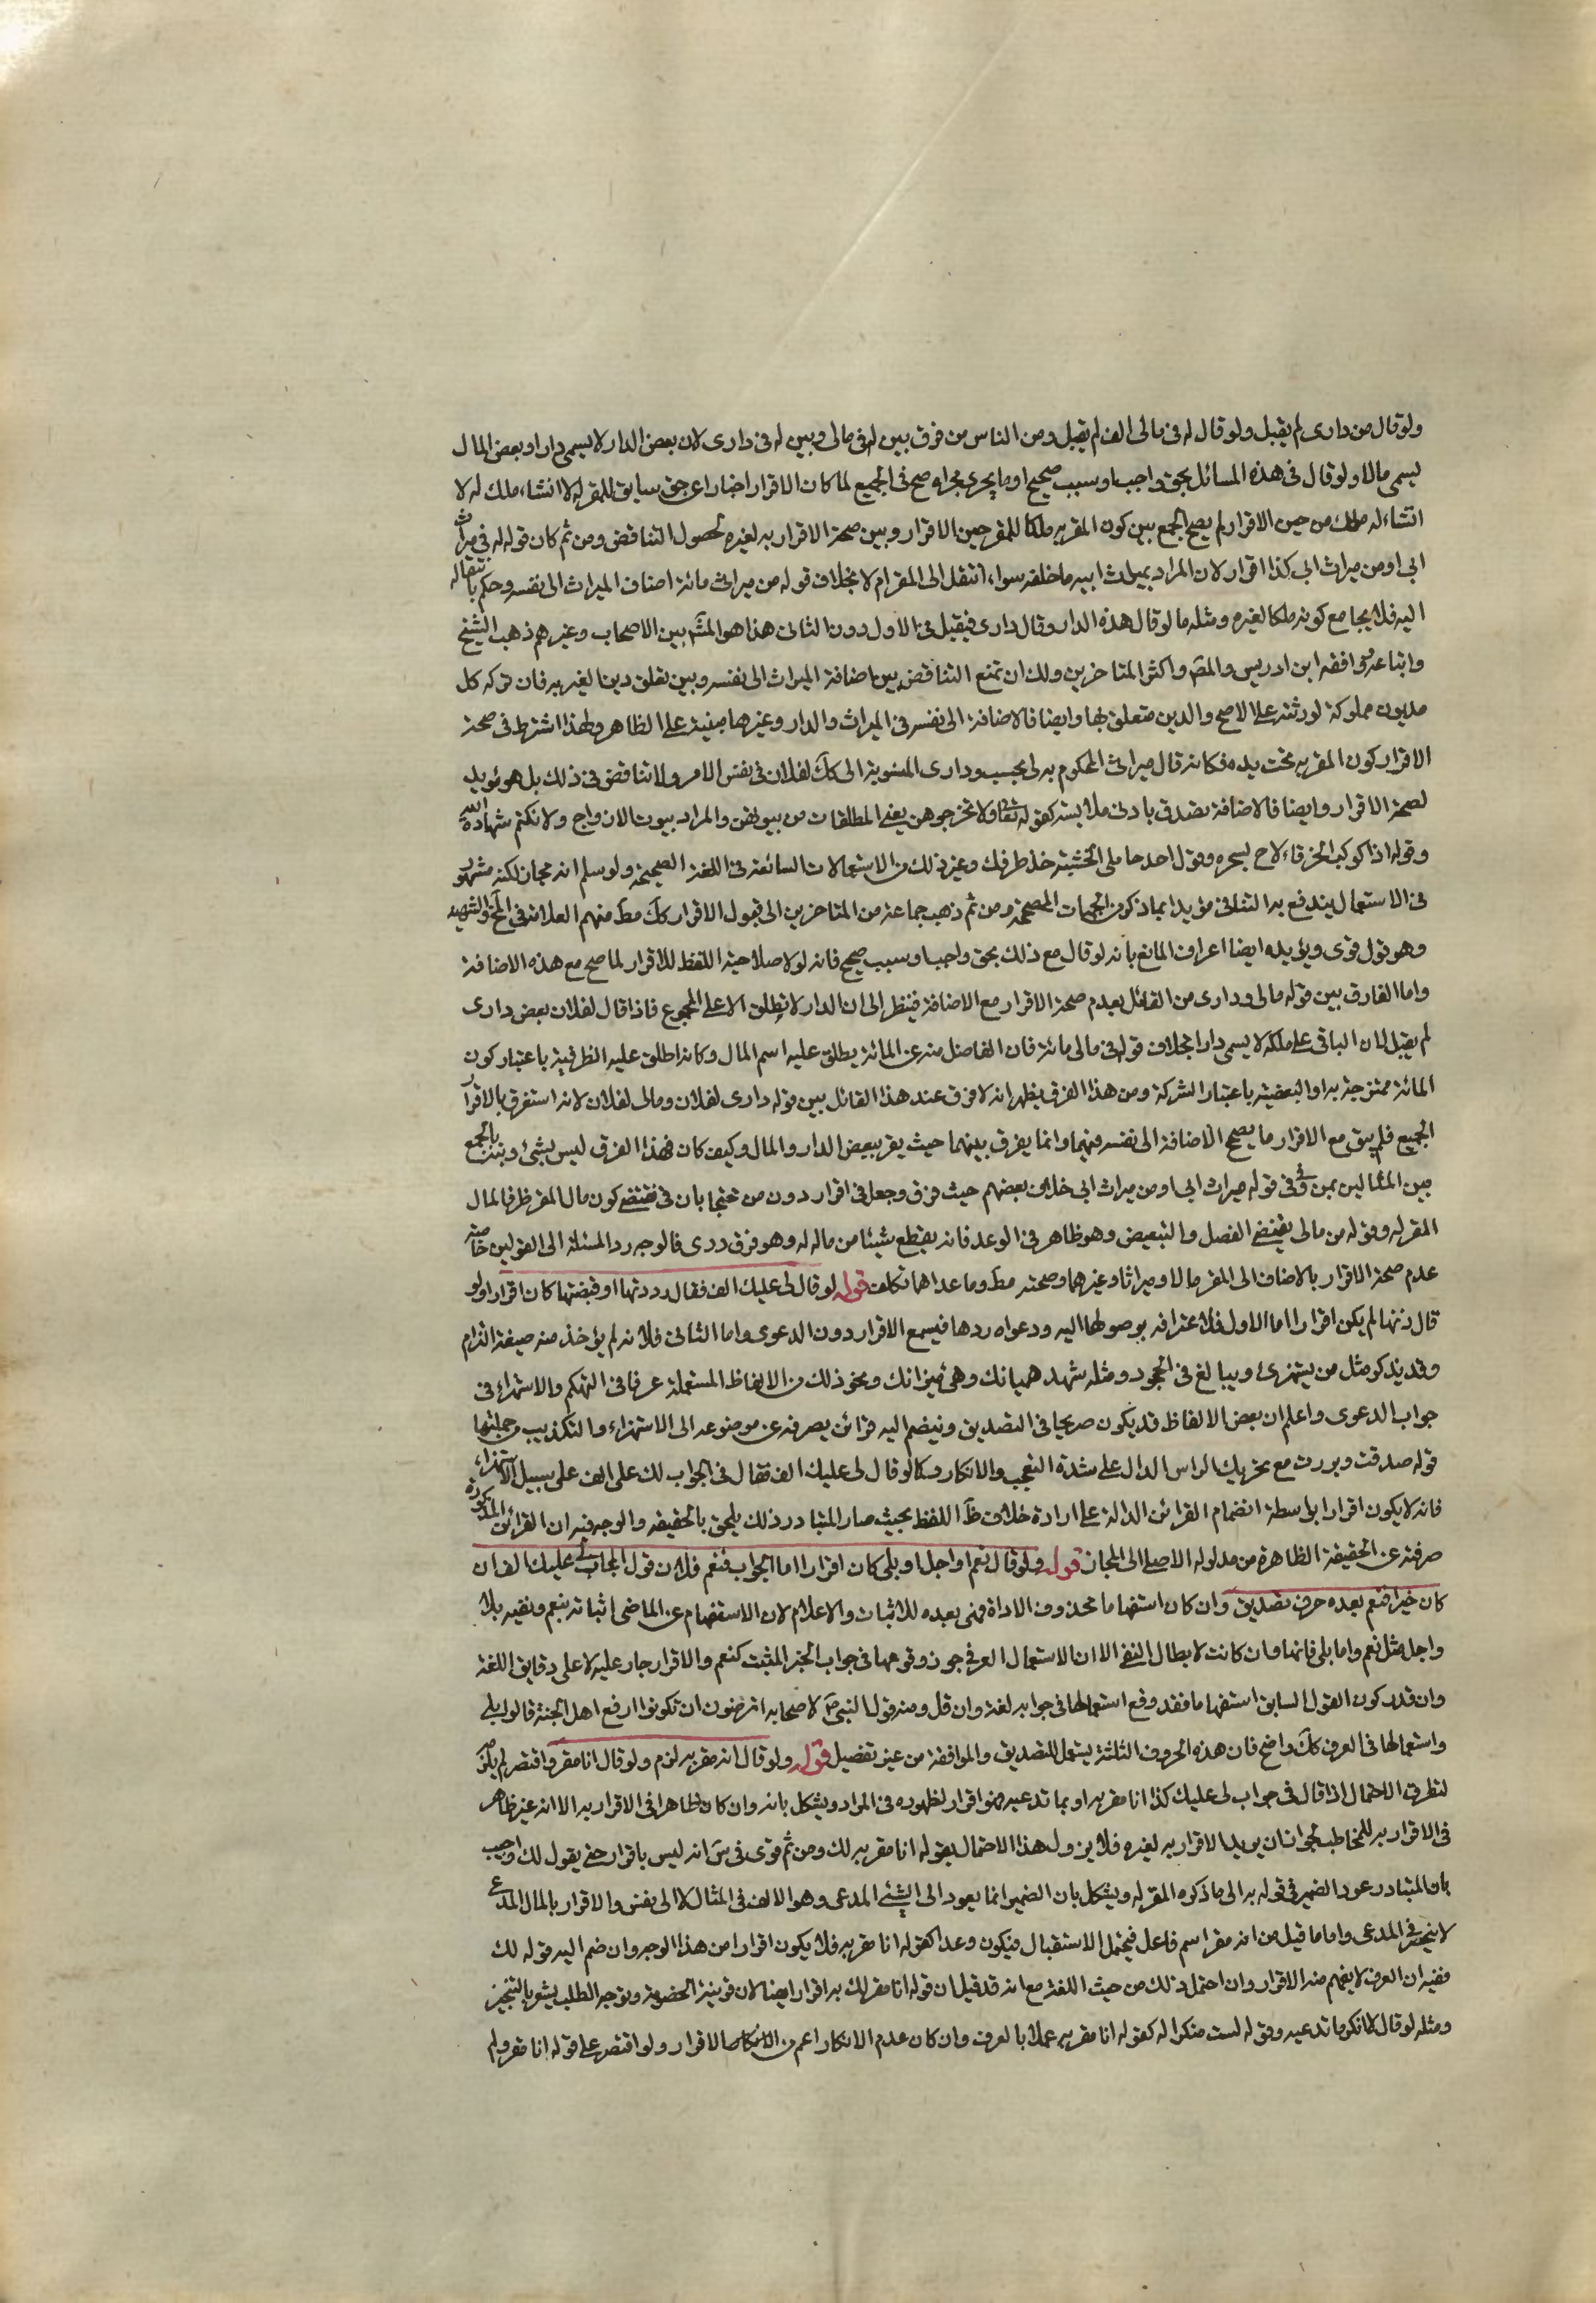 ولو قال من دارى لم يقبل ولو قال له فى مالى الف لم يقبل ومن الناس من فرق بين له فى مالى وبين له فى دارى لان بعض الدار لا يسمى دارا وبعض المال
يسمى مالا ولو قال فى هذه المسائل بحق واجب او سبب صحيح او ما يجرى مجراه صح فى الجميع لما كان الاقرار اخبارا عن حق سابق للمقر له لا انشاء ملك له لا
انشاء له ملك من حين الاقرار لم يصح الجمع بين كون المقر به ملكا للمقر حين الاقرار وبين صحة الاقرار به لغيره لحصول التناقض ومن ثم كان قوله له فى ميراث
ابى او من ميراث ابى كذا اقرار لان المراد بميراث ابيه ما خلفه سواء انتقل الى المقر ام لا بخلاف قوله من ميراثى مائة اضاف الميراث الى نفسه وحكم بانتقاله
اليه فلا يجامع كونه ملكا لغيره ومثله ما لو قال هذه الدار وقال دارى فيقبل فى الاول دون الثانى هذا هو المشہ بين الاصحاب وغيرهم ذهب الشيخ
واتباعه ووافقه ابن ادريس والمصہ واكثر المتاخرين ولك ان تمنع التناقض بين اضافة الميراث الى نفسه وبين تعلق دين الغير به فان تركه كل
مديون مملوكة لورثته على الاصح والدين متعلق بها وايضا فالاضافة الى نفسه فى الميراث والدار وغيرها مبنية على الظاهر ولهذا اشترط فى صحة
الاقرار كون المقر به تحت يده فكانه قال ميراثى المحكوم به لى بحسب ودارى المنسوبة الى كك لفلان فى نفس الامر ولا تناقض فى ذلك بل هو مؤيد
لصحة الاقرار وايضا فالاضافة تصدق بادنى ملابسة كقوله تعالى ولا تخرجوهن يعنى المطلقات من بيوتهن والمراد بيوت الازواج ولا نكتم شهادة الله
وقوله اذا كوكب الخرقاء لاح بسحره وقول احد حاملى الخشبة خذ طرفك وغير ذلك من الاستعمالات السائغة فى اللغة الصحيحة ولو سلم انه مجاز لكنه مشهور
فى الاستعمال يندفع به التنافى مؤيدا بما ذكر من الجهات المصححة ومن ثم ذهب جماعة من المتاخرين الى قبول الاقرار كك مط منهم العلامة فى المخ والشهيد
وهو قول قوى ويؤيده ايضا اعتراف المانع بانه لو قال مع ذلك بحق واجب او سبب صحيح فانه لولا صلاحية اللفظ للاقرار لما صح مع هذه الاضافة
واما الفارق بين قوله مالى ودارى من القائل بعدم صحة الاقرار مع الاضافة فينظر الى ان الدار لا يطلق الا على المجموع فاذا قال لفلان بعض دارى
لم يقبل لان الباقى على ملكه لا يسمى دارا بخلاف قوله فى مالى مائة فان الفاضل منه عن المائة يطلق عليه اسم المال وكانه اطلق عليه الظرفية باعتبار كون
المائة ممتزجة به او البعضية باعتبار الشركة ومن هذا الفرق يظهر انه لا فرق عند هذا القائل بين قوله دارى لفلان ومالى لفلان لانه استغرق بالاقرار
الجميع فلم يبق مع الاقرار ما يصحح الاضافة الى نفسه فيهما وانما يفرق بينهما حيث يقر ببعض الدار والمال وكيف كان فهذا الفرق ليس بشئ وبالجمع
بين المثالين بمن وفى فى قوله ميراث ابى او من ميراث ابى خلاف بعضهم حيث فرق وجعل فى اقرار دون من محتجا بان فى تقتضى كون مال المقر ظرفا لمال
المقر له وقوله من مالى يقتضى الفصل والتبعيض وهو ظاهر فى الوعد فانه يقتطع شيئا من ماله له وهو فرق ردى فالوجه رد المسئلة الى القولين خاصة
عدم صحة الاقرار بالاضافة الى المقر مالا وميراثا وغيرهما وصحته مط وما عداهما تكلف قوله لو قال لى عليك الف فقال رددتها او قبضتها كان اقرارا ولو
قال زنها لم يكن اقرارا اما الاول فلاعترافه بوصولها اليه ودعواه ردها فيسمع الاقرار دون الدعوى واما الثانى فلانه لم يؤخذ منه صيغة التزام
وقد يذكر مثل من يستهزئ ويبالغ فى الجحود ومثله شهد هميانك وهئ ميزانك ونحو ذلك من الالفاظ المستعملة عرفا فى التهكم والاستهزاء فى
جواب الدعوى واعلم ان بعض الالفاظ قد يكون صريحا فى التصديق وينضم اليه قرائن يصرفه عن موضوعه الى الاستهزاء والتكذيب من جملتها
قوله صدقت وبررت مع تحريك الراس الدال على شدة التعجب والانكار وكما لو قال لى عليك الف فقال فى الجواب لك على الف على سبيل الاستهزاء
فانه لا يكون اقرارا بواسطة انضمام القرائن الدالة على ارادة خلاف ظ اللفظ بحيث صار المتبادر ذلك يلحق بالحقيقه والوجه فيه ان القرائن المذكورة
صرفته عن الحقيقة الظاهرة من مدلوله الاصلى الى المجاز قوله ولو قال نعم او اجل او بلى كان اقرارا اما الجواب فنعم فلان قول المجاب لى عليك الف ان
كان خبرا فنعم بعده حرف تصديق وان كان استفهاما محذوف الاداة فهى بعده للاثبات والاعلام لان الاستفهام عن الماضى اثباته بنعم ونفيه بلا
واجل مثل نعم واما بلى فانها وان كانت لابطال النفى الا ان الاستعمال العرفى جوز وقوعها فى جواب الخبر المثبت كنعم والاقرار جار عليه لا على دقايق اللغة
وان قدر كون القول السابق استفهاما فقد وقع استعمالها فى جوابه لغة وان قل ومنه قول النبى ص لاصحابه اترضون ان تكونوا ارفع اهل الجنة قالوا بلى
واستعمالها فى العرف كك واضح فان هذه الحروف الثلثة يستعمل للتصديق والموافقة من غير تفصيل قوله ولو قال انه مقر به لزم ولو قال انا مقر واقتصر لم يلزم
لتطرق الاحتمال اذا قال فى جواب لى عليك كذا انا مقر به او بما تدعيه فهو اقرار لظهوره فى المراد ويشكل بانه وان كان ظاهرا فى الاقرار به الا انه غير ظاهر
فى الاقرار به للمخاطب لجواز ان يريد الاقرار به لغيره فلا يزول هذا الاحتمال بقوله انا مقر به لك ومن ثم قوى فى س انه ليس باقرار حتى يقول لك واجيب
بان المتبادر عود الضمير فى قوله به الى ما ذكره المقر له ويشكل بان الضمير انما يعود الى الشئ المدعى وهو الالف فى المثال لا الى نفس والاقرار بالمال المدعى
لا ينحصر فى المدعى واما ما قيل من انه مقر اسم فاعل فيحتمل الاستقبال فيكون وعدا كقوله انا مقر به فلا يكون اقرارا من هذا الوجه وان ضم اليه قوله لك
ففيه ان العرف لا يفهم منه الاقرار وان احتمل ذلك من حيث اللغة مع انه قد قيل ان قوله انا مقر لك به اقرار ايضا لان قرينة الخصومة وتوجه الطلب يشعر بالتنجيز
ومثله لو قال لا انكر ما تدعيه وقوله لست منكرا له كقوله انا مقر به عملا بالعرف وان كان عدم الانكار اعم من الاقرار ولو اقتصر على قوله انا مقر ولم